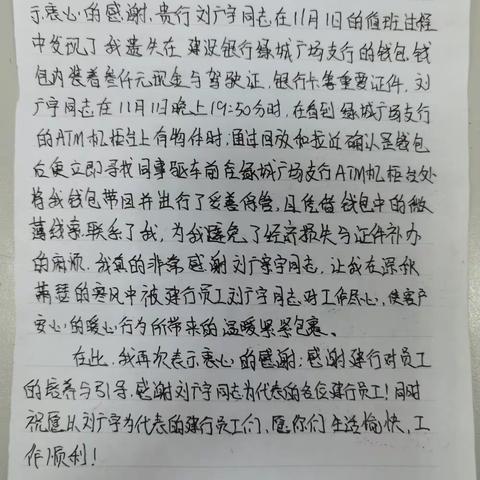 示衷心的感谢，贵行刘广宇同志在11月1日的值班过程
中发现了我遗失在建设银行绿城广场支行的钱包，钱
包内装着叁仟元现金与驾驶证，银行卡等重要证件，刘
广宇同志在11月1日晚上19:50分时，在看到绿城广场支行
的ATM机柜台上有物件时；通过回放和拉近确认是钱包
后便立即寻找同事驱车前往绿城广场支行ATM机柜台处
将我钱包带回并进行了妥善保管，且凭借钱包中的微
薄线索联系了我，为我避免了经济损失与证件补办
的麻烦，我真的非常感谢刘广宇同志，让我在深秋
萧瑟的寒风中被建行员工刘广宇同志对工作尽心，使客户
安心的暖心行为所带来的温暖紧紧包裹。
在此，我再次表示衷心的感谢；感谢建行对员工
的培养与引导，感谢刘广宇同志为代表的各位建行员工！同时
祝愿以刘广宇为代表的建行员工们，愿你们生活愉快，工
作顺利！